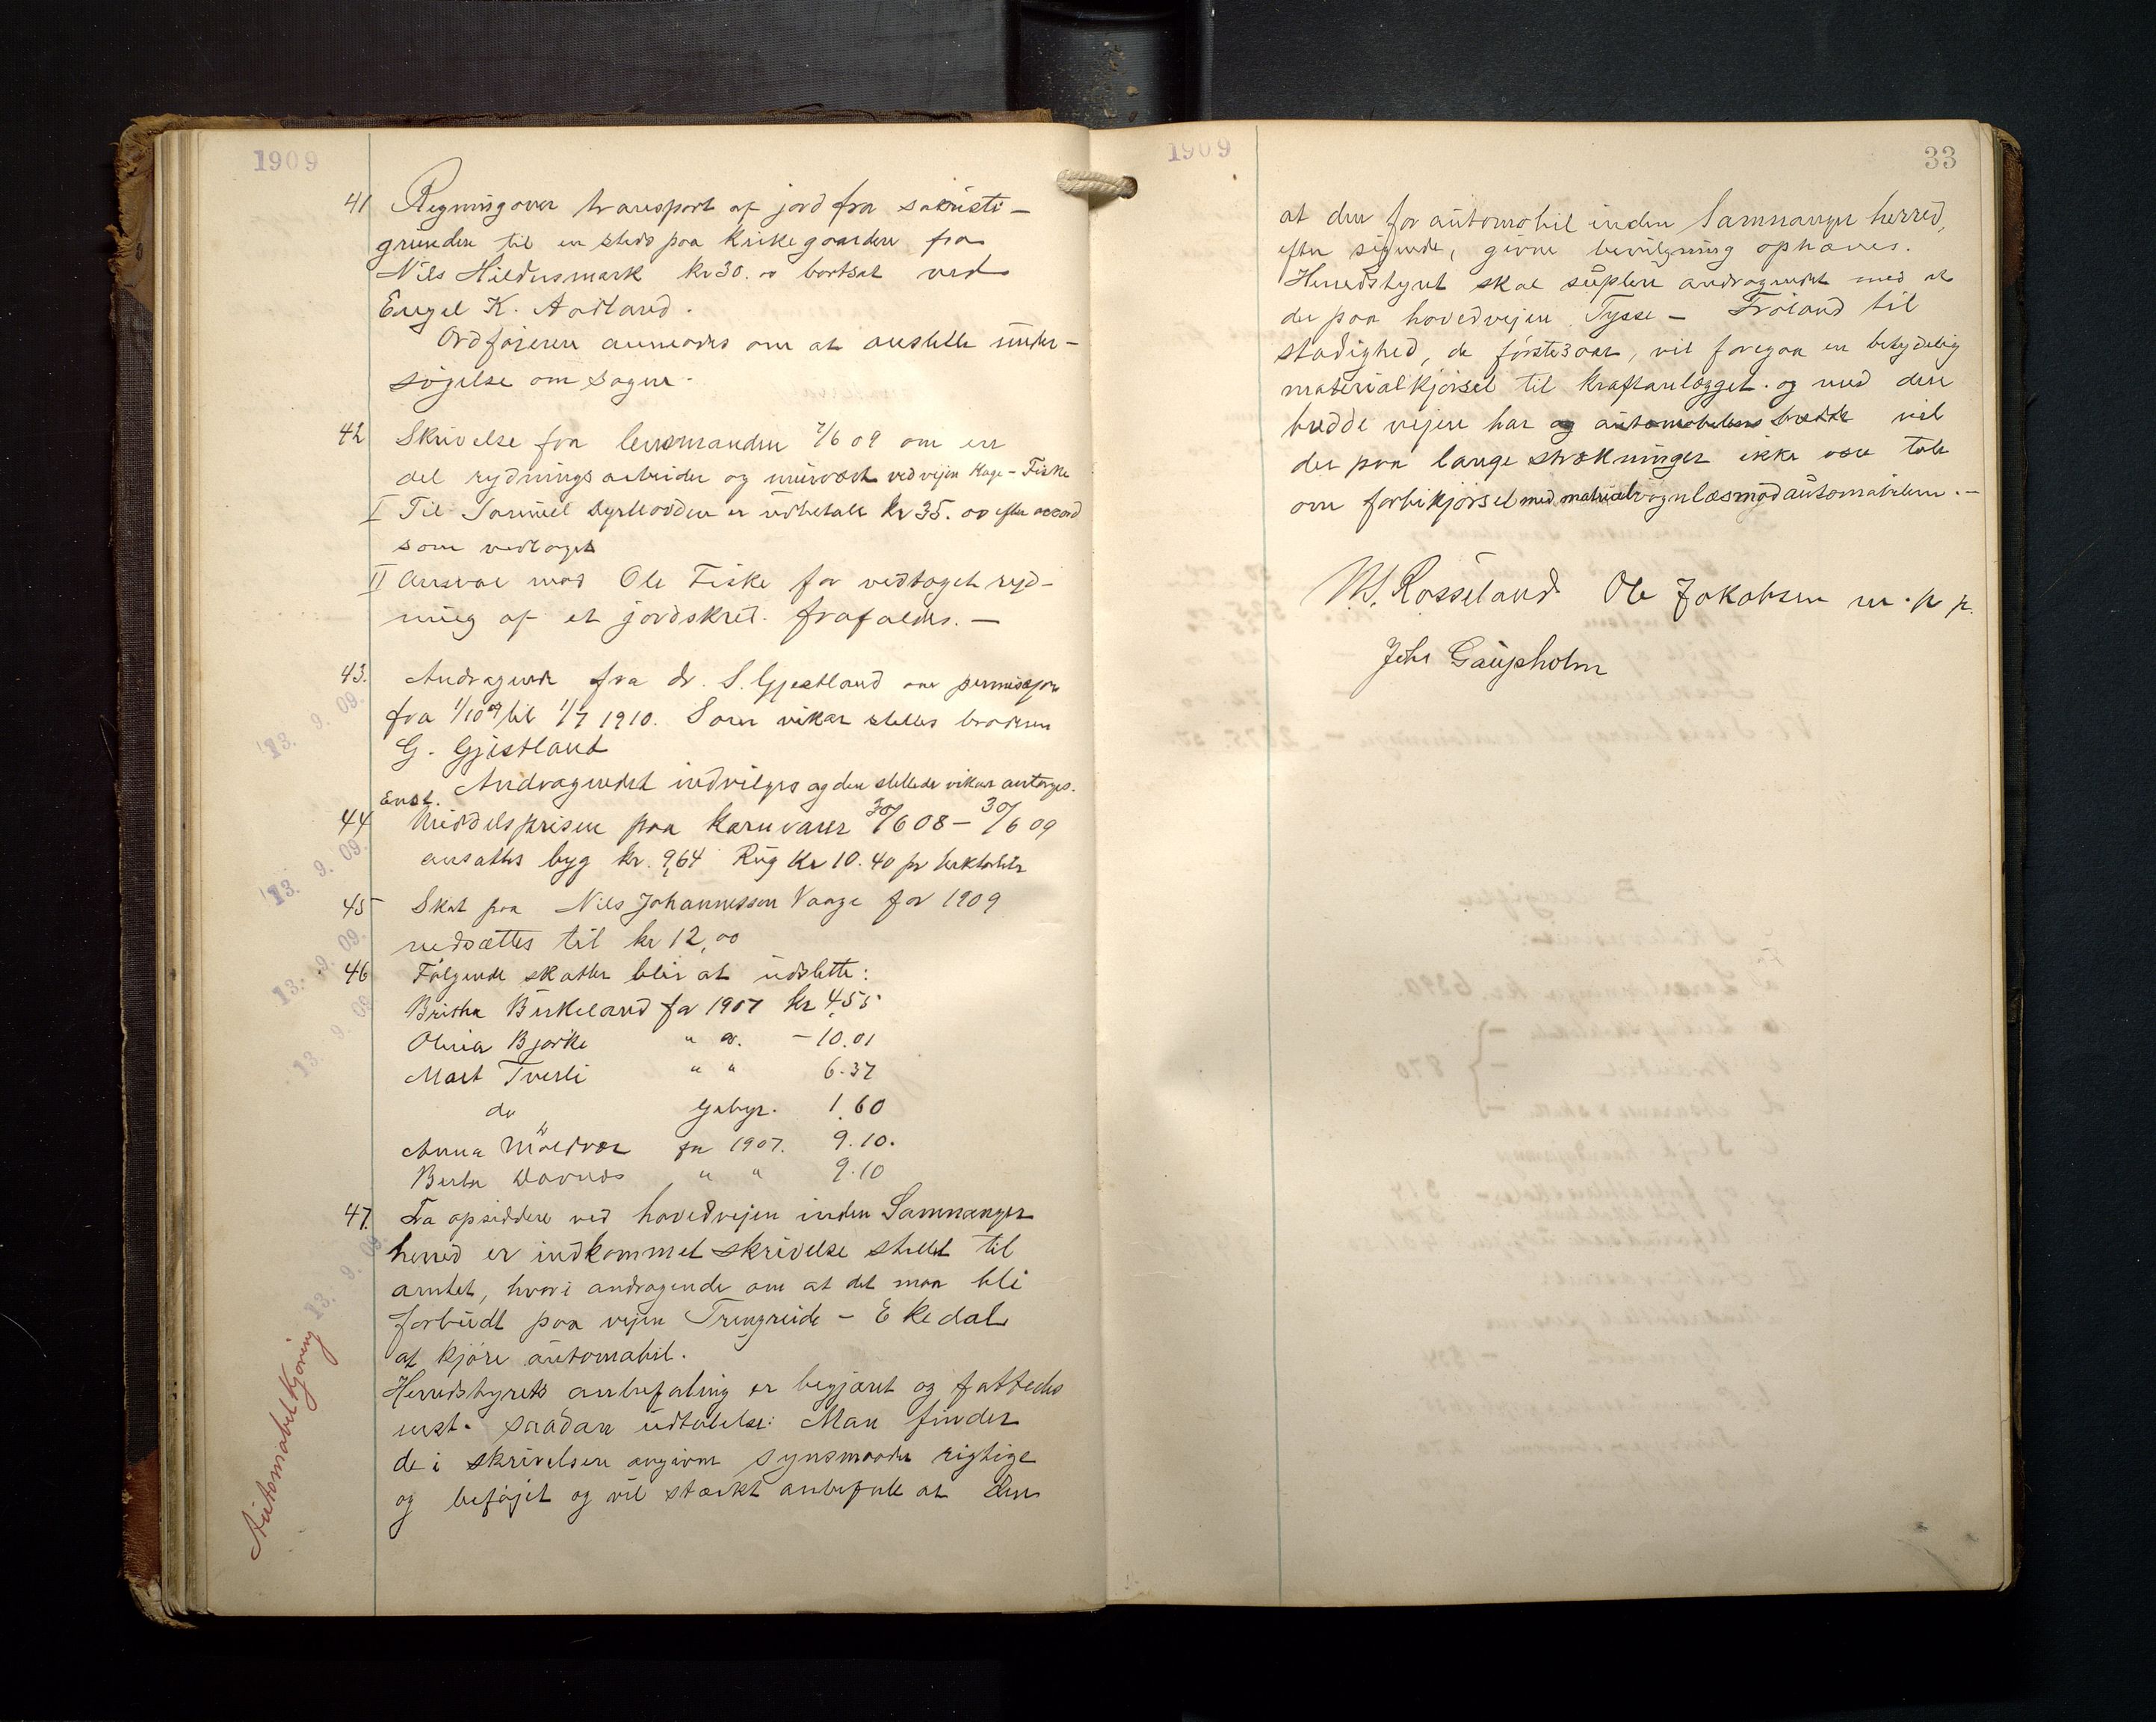 1909
41 Regning over transport af jord fra sakristi-
grunden til en steds paa kirkegaarden fra
Nils Hildersmark kr 30.00 bortsat ved
Engel K. Aadland.
Ordføreren anmodes om at anstille under-
søgelse om sagen.
42 Skrivelse fra lensmanden 7/6 09 om en
del rydningsarbeider og murværk ved vejen Hage - Fiske
I Til Samuel er udbetalt kr 35.00 efter accord
som vedtaget
II Ansvar mod Ole Fiske for vedtaget ryd-
ning af et jordskred frafaldes. —
43. Andragende fra dr. S. Gjestland om permission
fra 1/10 09 til 1/7 1910. Som vikar stilles broderen
G. Gjestland
Andragendet indvilges og den stillede vikar antages.
Enst.
44 Middelsprisen paa kornvarer 30/6 08 - 30/6 09
ansattes byg kr. 9,64 Rug kr 10.40 pr hektoliter
45 Skat paa Nils Johannessen Vaage for 1909
nedsættes til kr 12,00
46 Følgende skatter blir at udslette:
Britha Birkeland for 1907 kr 4,55
Olina Bjørke " " - 10.01
Mart Tverli " " 6.37
do " Gebyr. 1,60
Anna Møldvær for 1907. 9.10.
Berta " " 9.10
47. Fra opsiddere ved hovedvejen inden Samnanger
herred er indkommet skrivelse stillet til
amtet, hvori andragende om at det maa bli
forbudt paa vejen Trengreide - Ekedal
at kjøre automobil.
Herredstyrets anbefaling er begjæret og fattedes
enst. saadan udtalelse: Man finder
de i skrivelsen angivne synsmaader rigtige
og beføjet og vil stærkt anbefale at den
13. 9. 09.
13. 9. 09.
13. 9. 09.
13. 9. 09
13. 9. 09.
Automobilkjøring
1909
33
at den for automobil inden Samnanger herred,
efter sigende, givne bevilgning ophæves.
Herredstyret skal suplere andragendet med at
der paa hovedvejen Tysse - Frøland til
stadighed, de første 3 aar, vil foregaa en betydelig
materialkjørsel til kraftanlægget. og med den
bredde vejen har og automobilens bredde vil
der paa lange strækninger ikke være tale
om forbikjørsel med materialvognlæs mod automobilen. —
M. Rosseland Ole Jakobsen m. p. p.
Johs Gaupholm